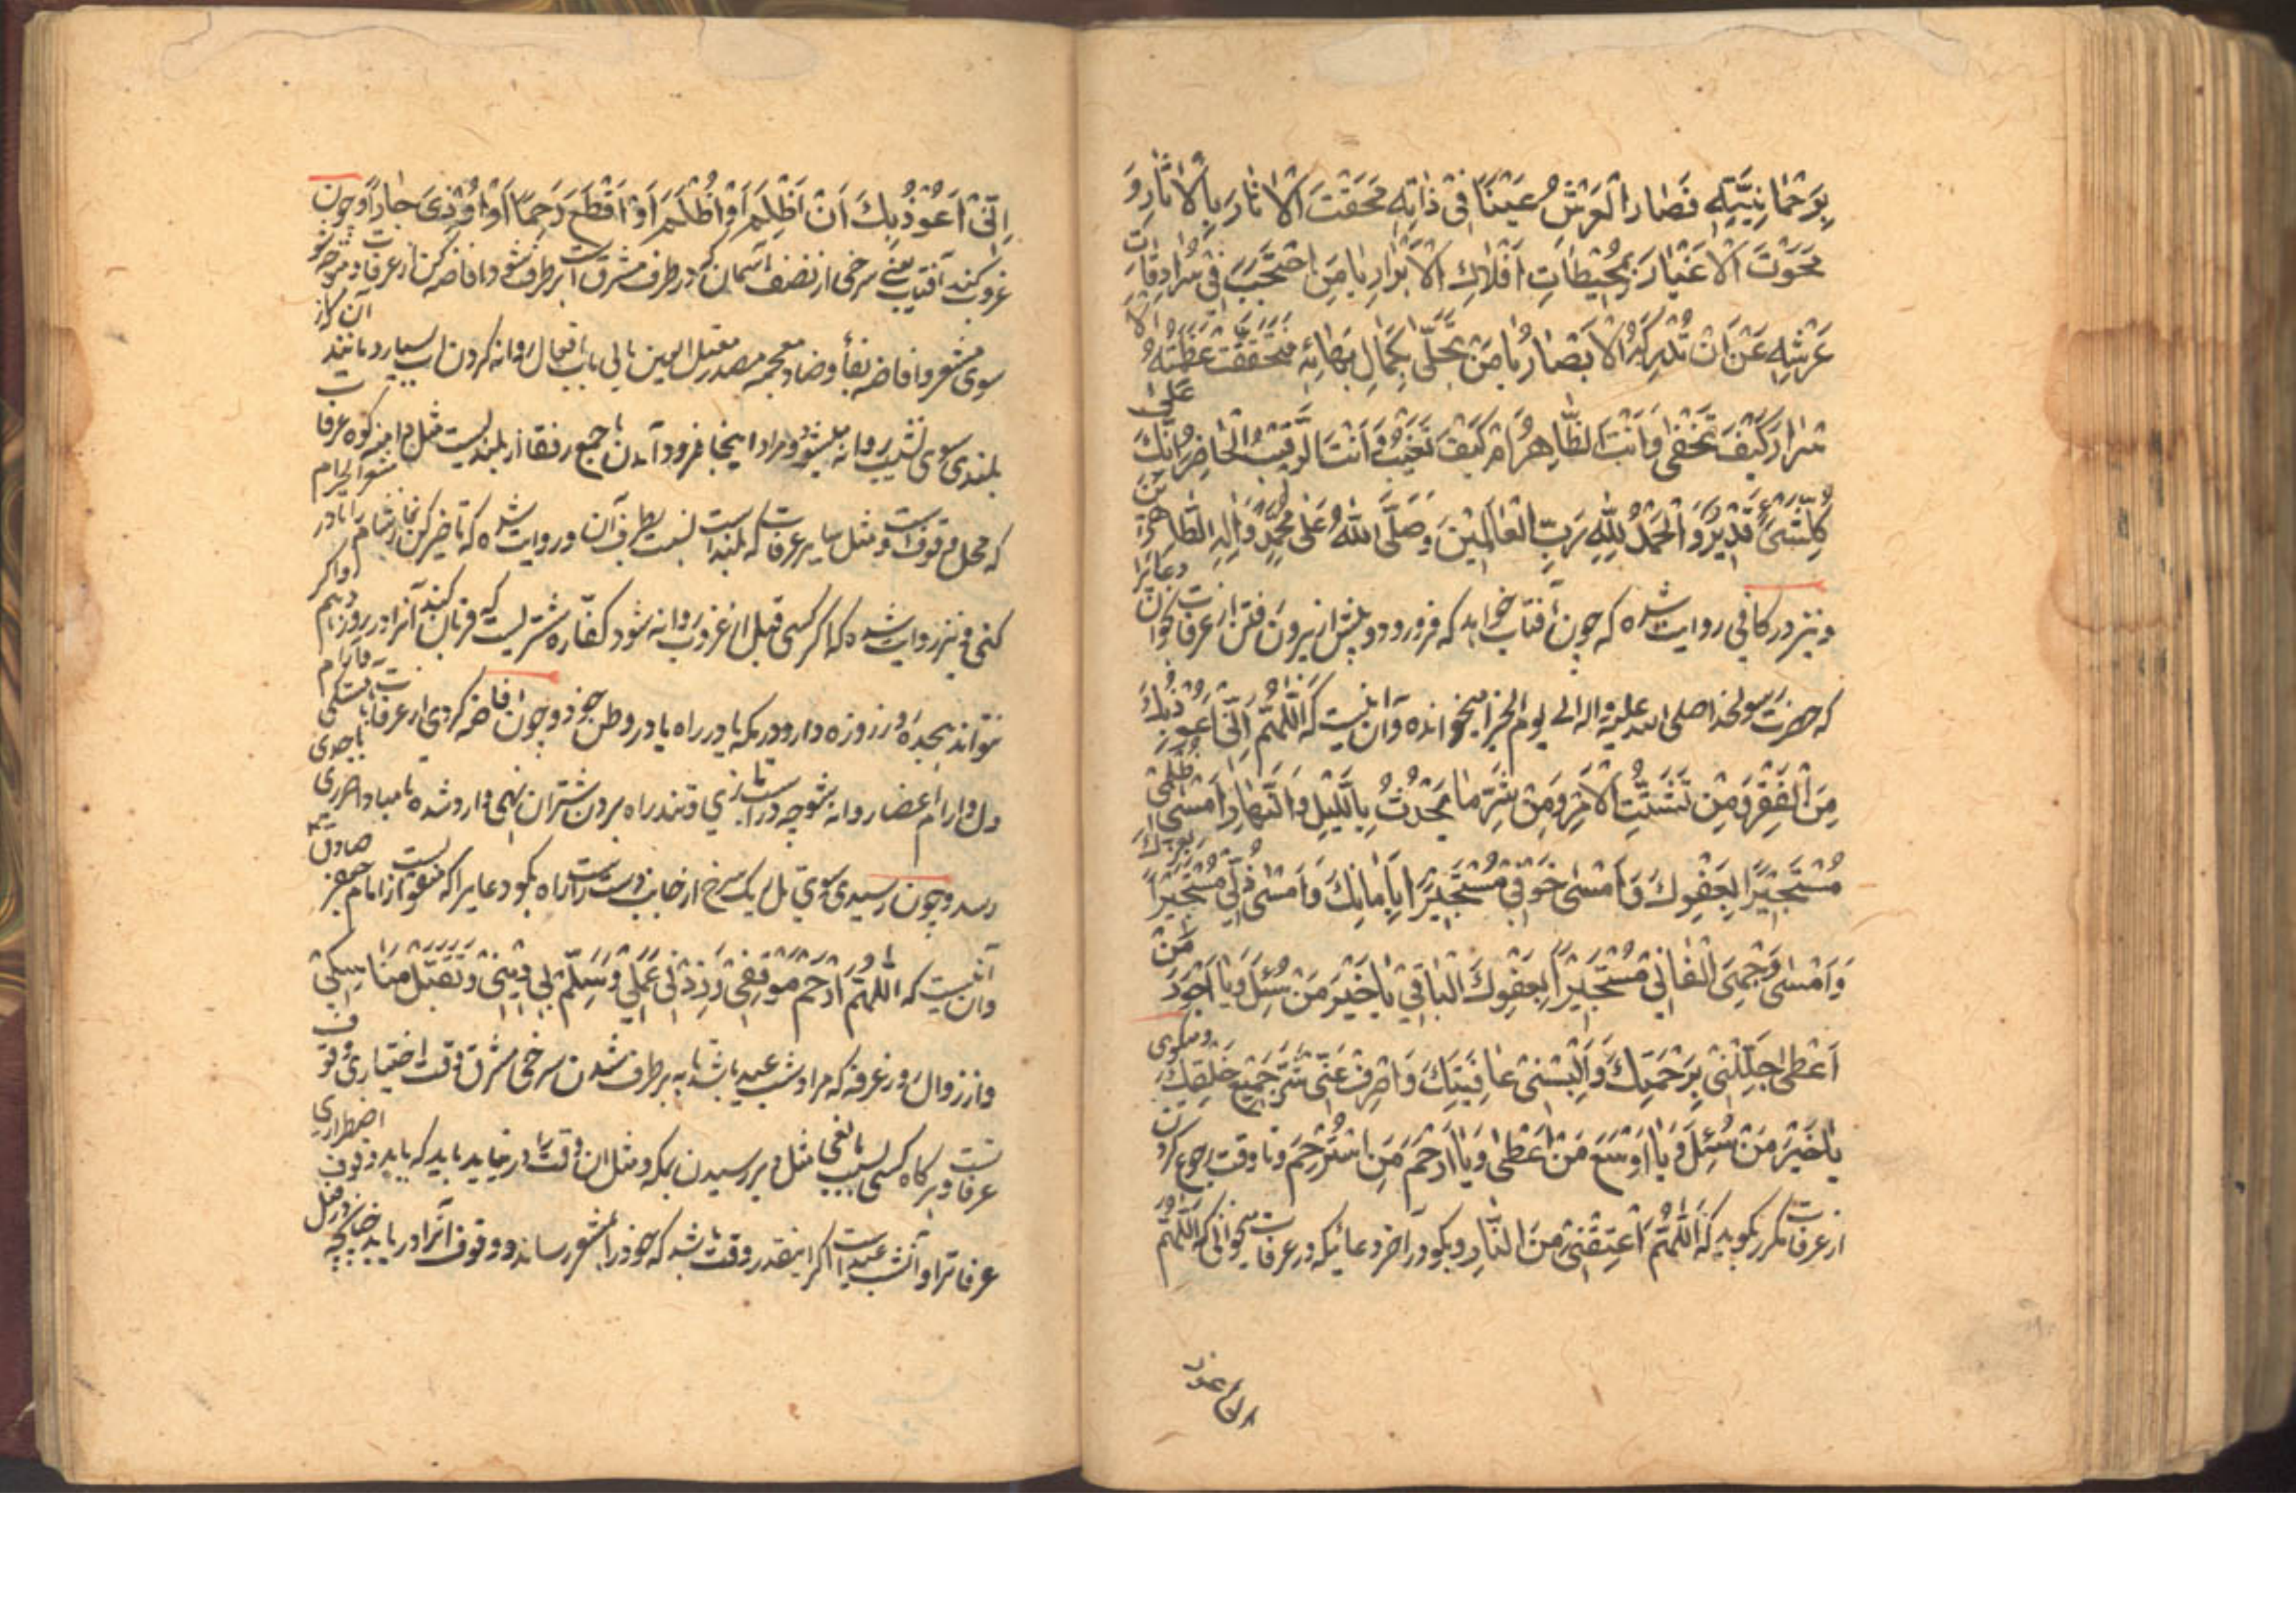 بِرَحْمانِيَّتِهِ فَصٰارَ الْعَرْشُ غَيْبًا فِي ذٰاتِهِ مَحَقْتَ الْاٰثٰارَ بِالْاٰثٰارِ وَ
مَحَوْتَ الْاَغْيٰارَ بِمُحِيْطٰاتِ اَفْلٰاكِ الْاَنْوٰارِ يٰا مَنِ احْتَجَبَ فِيْ سُرٰادِقٰاتِ
عَرْشِهِ عَنْ اَنْ تُدْرِكَهُ الْاَبْصٰارُ يٰا مَنْ تَجَلّٰى بِكَمٰالِ بَهٰائِهِ فَتَحَقَّقَتْ عَظَمَتُهُ الْا
سْرٰارَ كَيْفَ تَخْفٰى وَاَنْتَ الظّٰاهِرُ اَمْ كَيْفَ تَغِيْبُ وَاَنْتَ الرَّقِيْبُ الْحٰاضِرُ اِنَّكَ عَلٰى
كُلِّ شَيْءٍ قَدِيْرٌ وَالْحَمْدُ لِلّٰهِ رَبِّ الْعٰالَمِيْنَ وَصَلَّى اللّٰهُ عَلٰى مُحَمَّدٍ وَاٰلِهِ الطّٰاهِرِيْنَ
و نیز در کافی روایت شده که چون آفتاب خواهد که فرو رود و پیش از بیرون رفتن از عرفات بخوان دعائرا
که حضرت رسولخدا صلی الله علیه و اله الی یوم الجزا میخوانده و آن اینست که اَللّٰهُمَّ اِنِّيْ اَعُوْذُ بِكَ
مِنَ الْفَقْرِ وَمِنْ تَشَتُّتِ الْاَمْرِ وَمِنْ شَرِّ مٰا يَحْدُثُ بِاللَّيْلِ وَالنَّهٰارِ اَمْسٰى ظُلْمِيْ
مُسْتَجِيْرًا بِعَفْوِكَ وَاَمْسٰى خَوْفِيْ مُسْتَجِيْرًا بِاَمٰانِكَ وَاَمْسٰى ذُلِّيْ مُسْتَجِيْرًا بِعِزِّكَ
وَاَمْسٰى وَجْهِيَ الْفٰانِيْ مُسْتَجِيْرًا بِعَفْوِكَ الْبٰاقِيْ يٰا خَيْرَ مَنْ سُئِلَ وَيٰا اَجْوَدَ مَنْ
اَعْطٰى جَلِّلْنِيْ بِرَحْمَتِكَ وَاَلْبِسْنِيْ عٰافِيَتَكَ وَاصْرِفْ عَنِّيْ شَرَّ جَمِيْعِ خَلْقِكَ و میگوی
يٰا خَيْرَ مَنْ سُئِلَ وَيٰا اَوْسَعَ مَنْ اَعْطٰى وَيٰا اَرْحَمَ مَنِ اسْتُرْحِمَ و تا وقت رجوع کردن
از عرفات مکرر بکوید که اَللّٰهُمَّ اَعْتِقْنِيْ مِنَ النّٰارِ و بکو در آخر دعائیکه در عرفات میخوانی که اَللّٰهُمَّ
اِنِّيْ اَعُوْذُ بِكَ اَنْ اَظْلِمَ اَوْ اُظْلَمَ اَوْ اَقْطَعَ رَحِمًا اَوْ اُوْذِيَ جٰارًا و چون
غروب کند آفتاب یعنی سرخی از نصف آسمان که در طرف مشرق است برطرف شود افاضه کن از عرفات و متوجه شو
سوی مشعر و افاضه بفا و ضاد معجمه مصدر معتل العین یائی باب افعال روانه کردن اب بسیار مانند آن از
بلندی سوی نشیب روانه میشود و مراد اینجا فرود آمدن با جمیع رفقا از بلندیست مثل دامنه کوه عرفات
که محل وقوفست و مثل سایر عرفات که بلند است نسبت بطرف آن و روایت شده که تاخیر کن نماز شام را تا در مشعر الحرام
کنی و نیز روایت شده که اگر کسی قبل از غروب روانه شود کفاره شتریست که قربان کند آنرا در روز دهم و اگر
نتواند هیجده روز روزه دارد در مکه یا در راه یا در وطن خود و چون افاضه کردی از عرفات با تسکین
دل و ارام اعضا روانه شو چه در تازی و تند راه بردن شتران نهی وارد شده تا مبادا ضرری باحدی
رسد و چون رسیدی سوی تل ریک سرخ از جانب دست راست راه بکو دعایرا که منقولست از امام جعفر صادق
و ان اینست که اَللّٰهُمَّ ارْحَمْ مَوْقِفِيْ وَزِدْ فِيْ عَمَلِيْ وَسَلِّمْ لِيْ دِيْنِيْ وَتَقَبَّلْ مَنٰاسِكِيْ
و از زوال روز عرفه که مراد شب عید باشد تا به برطرف شدن سرخی مشرق وقت اختیاری وقوف
عرفات و هرگاه کسی بسبب مانعی مثل دیر رسیدن بمکه و مثل ان وقت را در نیابد باید که باید وقوف اضطراری
عرفاترا و آن شب عید است اگر اینقدر وقت باشد که خود را بمشعر رساند و وقوف آنرا دریابد چنانکه